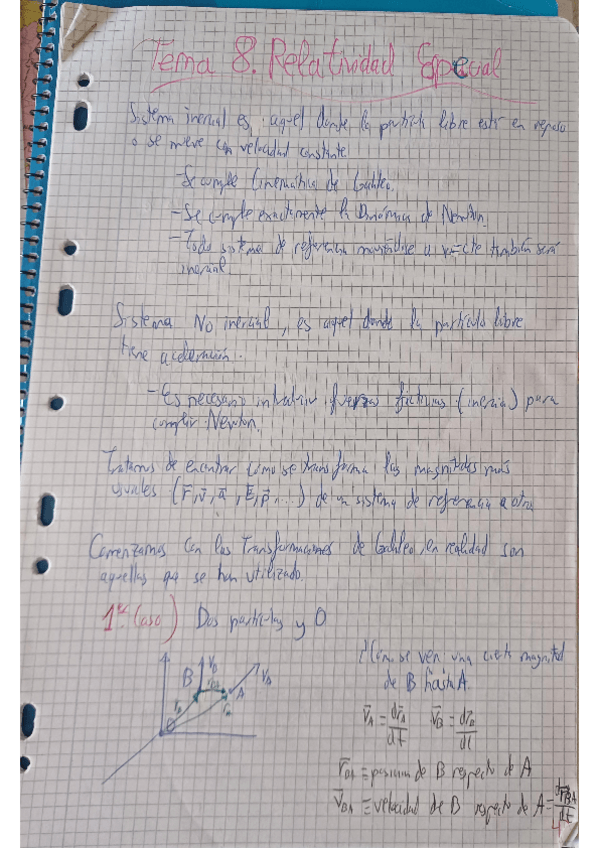 Tema 8. Relatividad Especial
Sistema inercial es, aquel donde la partícula libre está en reposo
o se mueve con velocidad constante
- Se cumple Cinemática de Galileo.
- Se cumple exactamente la Dinámica de Newton.
- Todo sistema de referencia moviéndose a v=cte también será
inercial.
Sistema No inercial, es aquel donde la partícula libre
tiene aceleración.
- Es necesario introducir fuerzas ficticias (inercia) para
cumplir Newton.
Tratamos de encontrar cómo se transforma las magnitudes más
usuales (F⃗, v⃗, a⃗, E⃗, p⃗, ...) de un sistema de referencia a otro
Comenzamos con las Transformaciones de Galileo, en realidad son
aquellas que se han utilizado.
1er Caso) Dos partículas y O
¿Cómo se ven una cierta magnitud
de B hasta A.
B
A
v⃗A = dr⃗A/dt v⃗B = dr⃗B/dt
r⃗BA ≡ posición de B respecto de A
v⃗BA ≡ velocidad de B respecto de A = dr⃗BA/dt